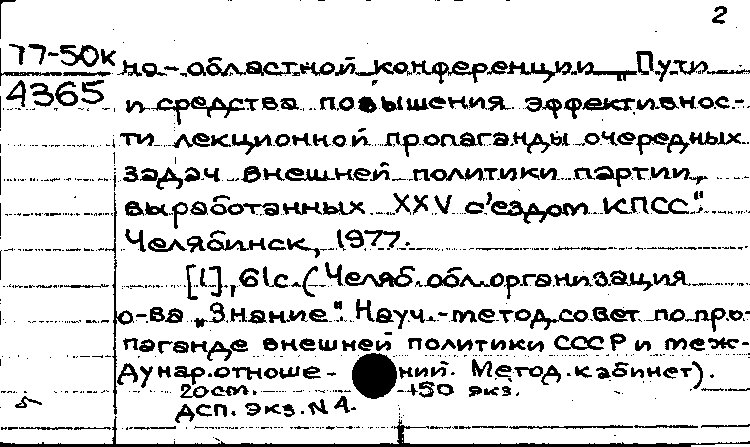 2
77-50к но-областной конференции „Пути
4365 и средства повышения эффективнос-
ти лекционной пропаганды очередных
задач внешней политики партии,
выработанных XXV с'ездом КПСС".
Челябинск, 1977.
[1], 61с. (Челяб. обл. организация
о-ва „Знание". Науч.-метод. совет по про-
паганде внешней политики СССР и меж-
дунар. отноше- ний. Метод. кабинет).
20см. 150 экз.
ДСП. Экз. N 4.